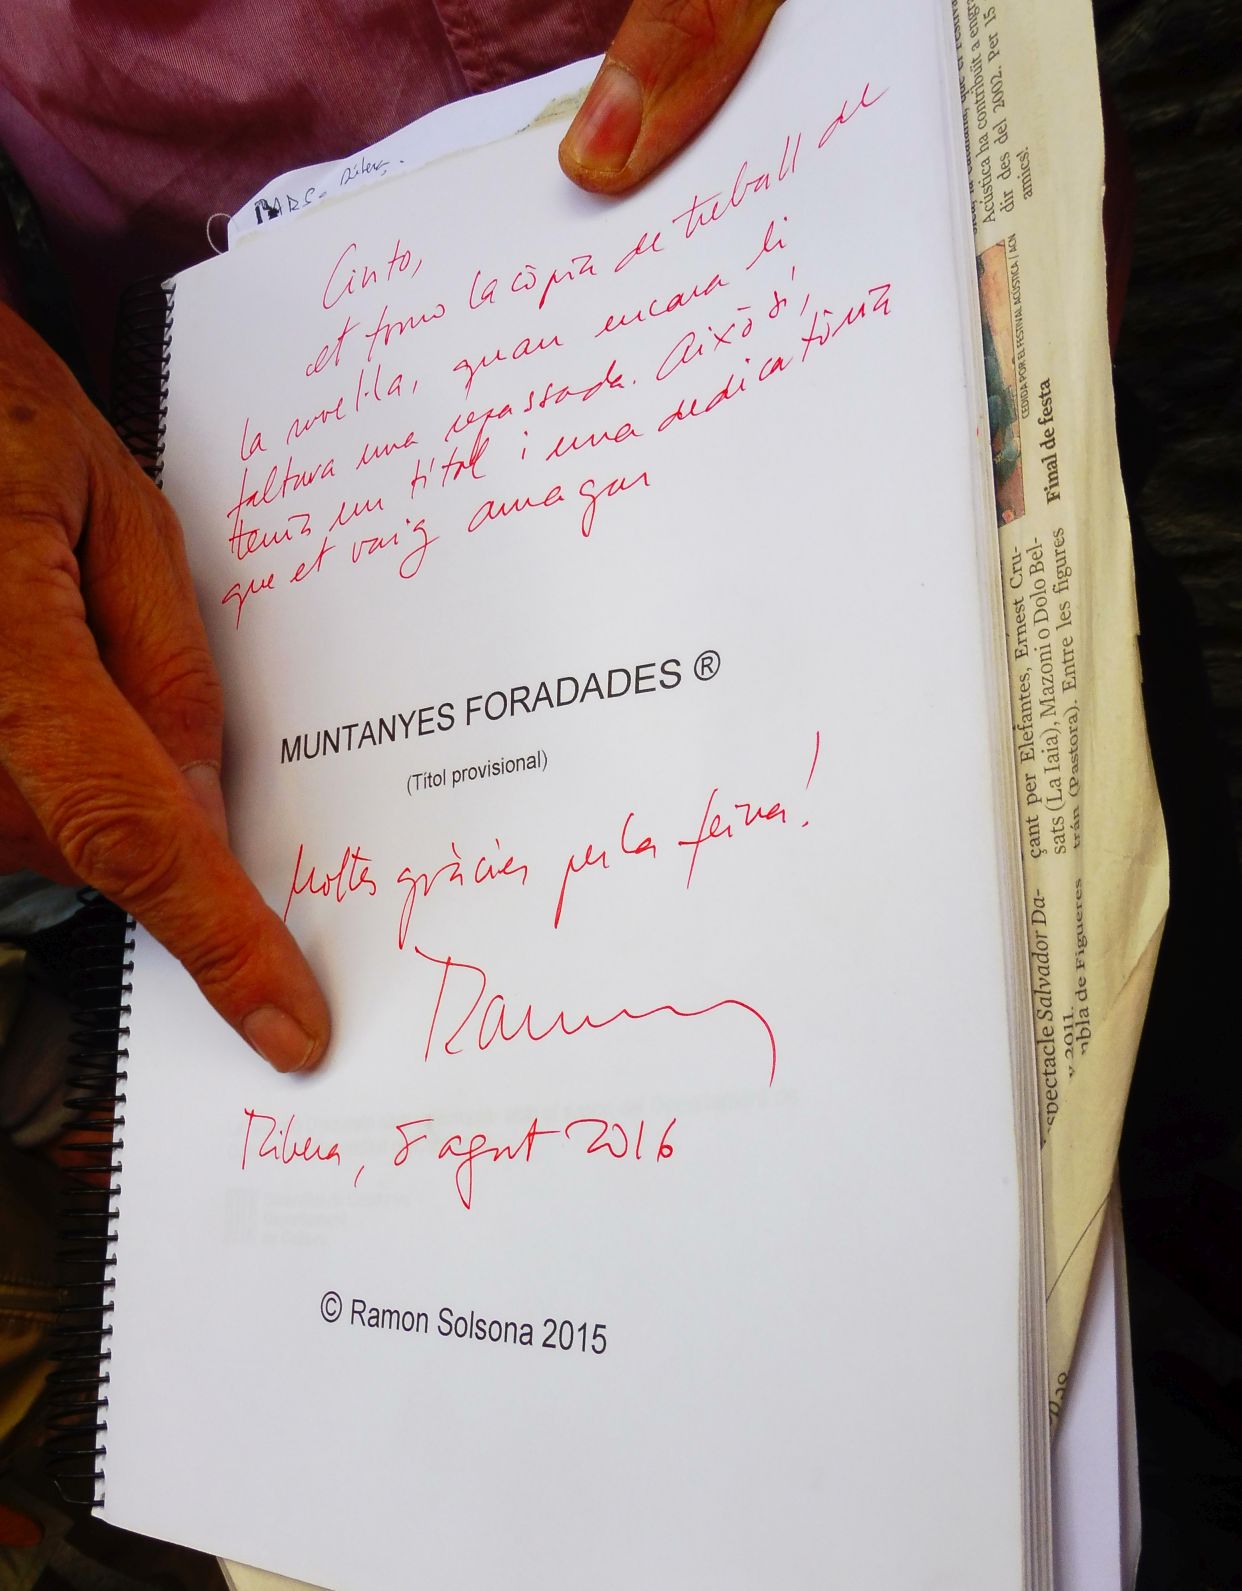 Cinto,
et torno la còpia de treball de
la novel·la, quan encara li
faltava una repassada. Això sí,
tenia un títol i una dedicatòria
que et vaig amagar
MUNTANYES FORADADES ®
(Títol provisional)
Moltes gràcies per la feina!
Ramon
Ribera, 8 agost 2016
© Ramon Solsona 2015
Acústica ha contribuït a engr
dir des del 2002. Per 15
amics!.
CEDIDA POR EL FESTIVAL ACÚSTICA / ACN
Final de festa
çant per Elefantes, Ernest Cru-
sats (La Iaia), Mazoni o Dolo Bel-
trán (Pastora). Entre les figures
spectacle Salvador Da-
y 2011.
mbla de Figueres